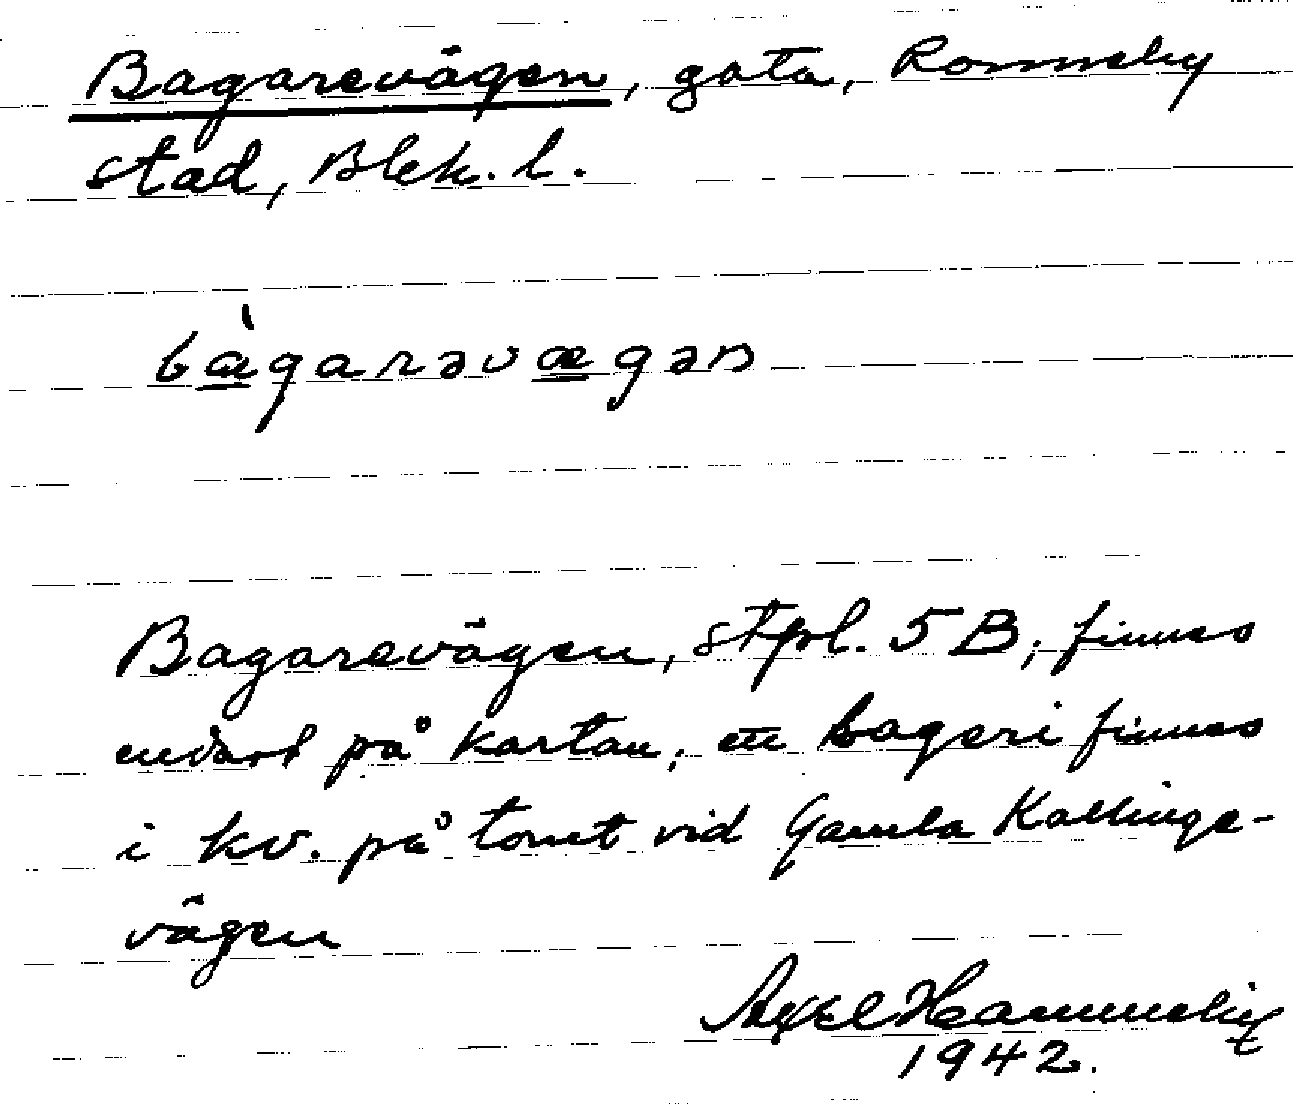 Bagarevägen, gata, Ronneby
stad, Blek. l.
bàgarəvægən
Bagarevägen, stpl. 5 B, finnes
endast på kartan, ett bageri finnes
i kv. på tomt vid Gamla Kallinge-
vägen
Axel
1942.